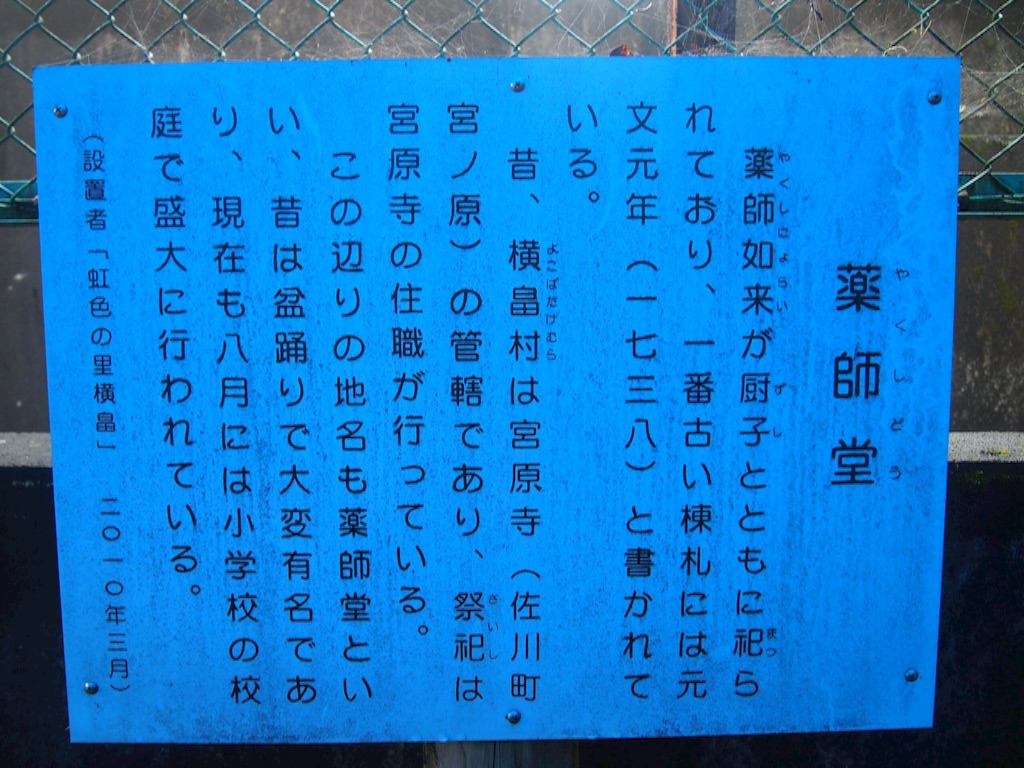 薬師堂
やくしどう
薬師如来が厨子とともに祀ら
やくしにょらい
ずし
まつ
れており、一番古い棟札には元
文元年（一七三八）と書かれて
いる。
昔、横畠村は宮原寺（佐川町
よこばたけむら
宮ノ原）の管轄であり、祭祀は
さいし
宮原寺の住職が行っている。
この辺りの地名も薬師堂とい
い、昔は盆踊りで大変有名であ
り、現在も八月には小学校の校
庭で盛大に行われている。
（設置者「虹色の里横畠」　二〇一〇年三月）